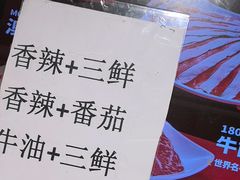 香辣+三鲜
香辣+番茄
牛油+三鲜
180
牛
世界名